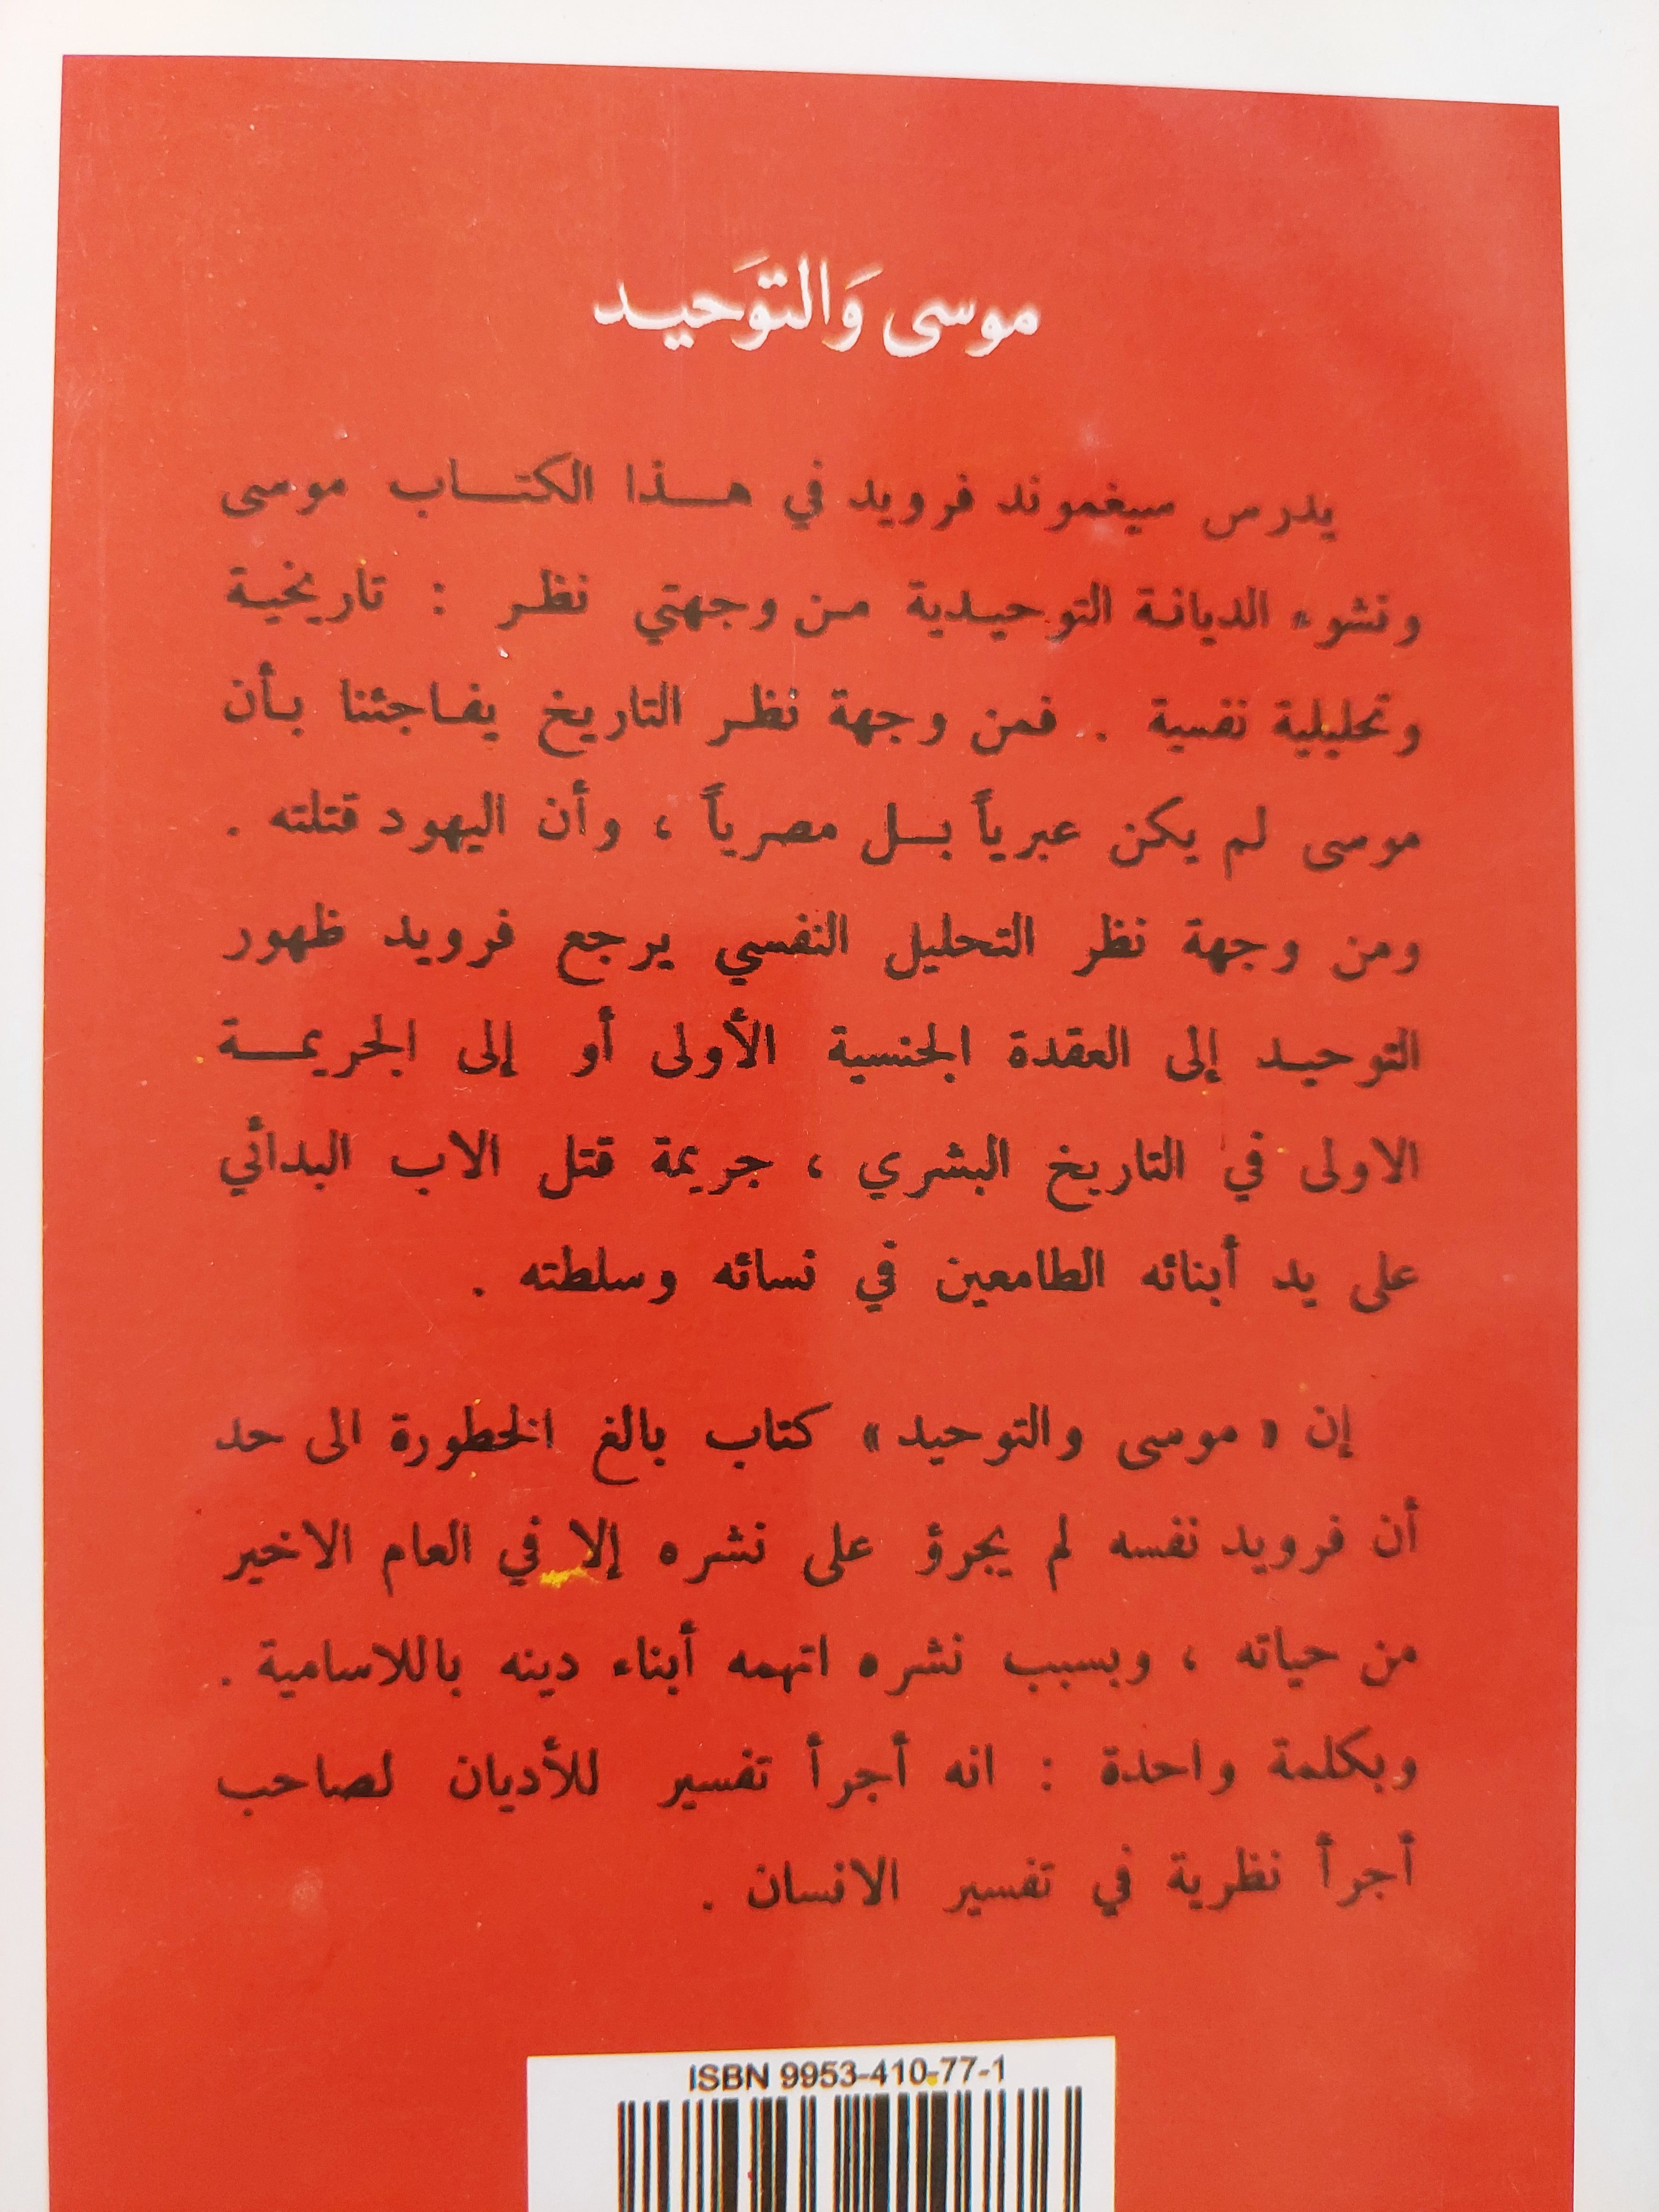 موسى وَالتوَحيد
يدرس سيغموند فرويد في هذا الكتاب موسى
ونشوء الديانة التوحيدية من وجهتي نظر : تاريخية
وتحليلية نفسية . فمن وجهة نظر التاريخ يفاجئنا بأن
موسى لم يكن عبرياً بل مصرياً ، وأن اليهود قتلته .
ومن وجهة نظر التحليل النفسي يرجع فرويد ظهور
التوحيد إلى العقدة الجنسية الأولى أو إلى الجريمة
الاولى في التاريخ البشري ، جريمة قتل الاب البدائي
على يد أبنائه الطامعين في نسائه وسلطته .
إن « موسى والتوحيد» كتاب بالغ الخطورة الى حد
أن فرويد نفسه لم يجرؤ على نشره إلا في العام الاخير
من حياته ، وبسبب نشره اتهمه أبناء دينه باللاسامية .
وبكلمة واحدة : انه أجرأ تفسير للأديان لصاحب
أجرأ نظرية في تفسير الانسان .
ISBN 9953-410-77-1